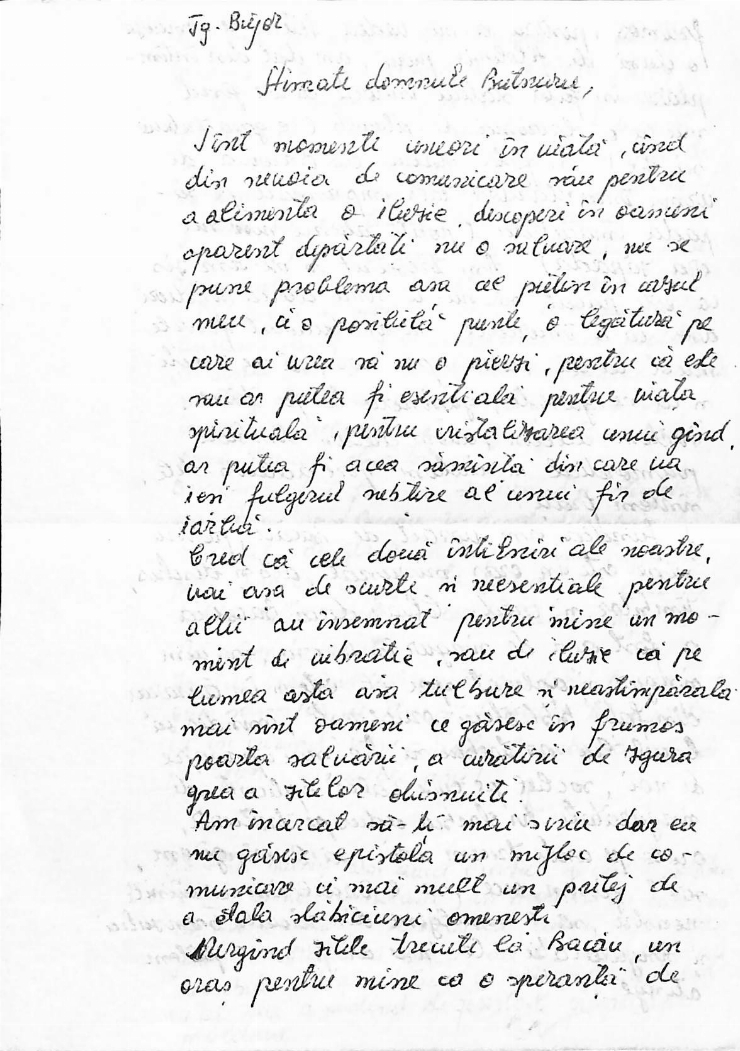 Tg. Bujor
Stimate domnule Butnuru,
Sînt momente uneori în viată, cînd
din nevoia de comunicare sau pentru
a alimenta o iluzie, descoperi în oameni
aparent depărtati nu o salvare, nu se
pune problema asa cel putin în cazul
meu, ci o posibilă punte, o legătură pe
care ai vrea să nu o pierzi, pentru că este
sau ar putea fi esentială pentru viata
spirituală, pentru cristalizarea unui gînd,
ar putea fi acea sămînta din care va
iesi fulgerul subtire al unui fir de
iarbă.
Cred că cele două întîlniri ale noastre,
vai asa de scurte si neesentiale pentru
altii au însemnat pentru mine un mo-
ment de vibratie, sau de iluzie că pe
lumea asta asa tulbure si neastîmpărată
mai sînt oameni ce găsesc în frumos
poarta salvării, a curătirii de zgura
grea a zilelor obisnuite.
Am încercat să-ti mai scriu dar eu
nu găsesc epistola un mijloc de co-
municare ci mai mult un prilej de
a etala slăbiciuni omenesti
Mergînd zilele trecute la Bacău, un
oraș pentru mine ca o speranță de